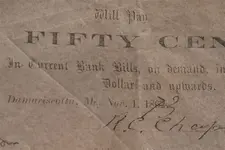 Will Pay
FIFTY CEN
In Current Bank Bills, on demand, in
Dollar and upwards.
Damariscotta, Me. Nov. 1, 186